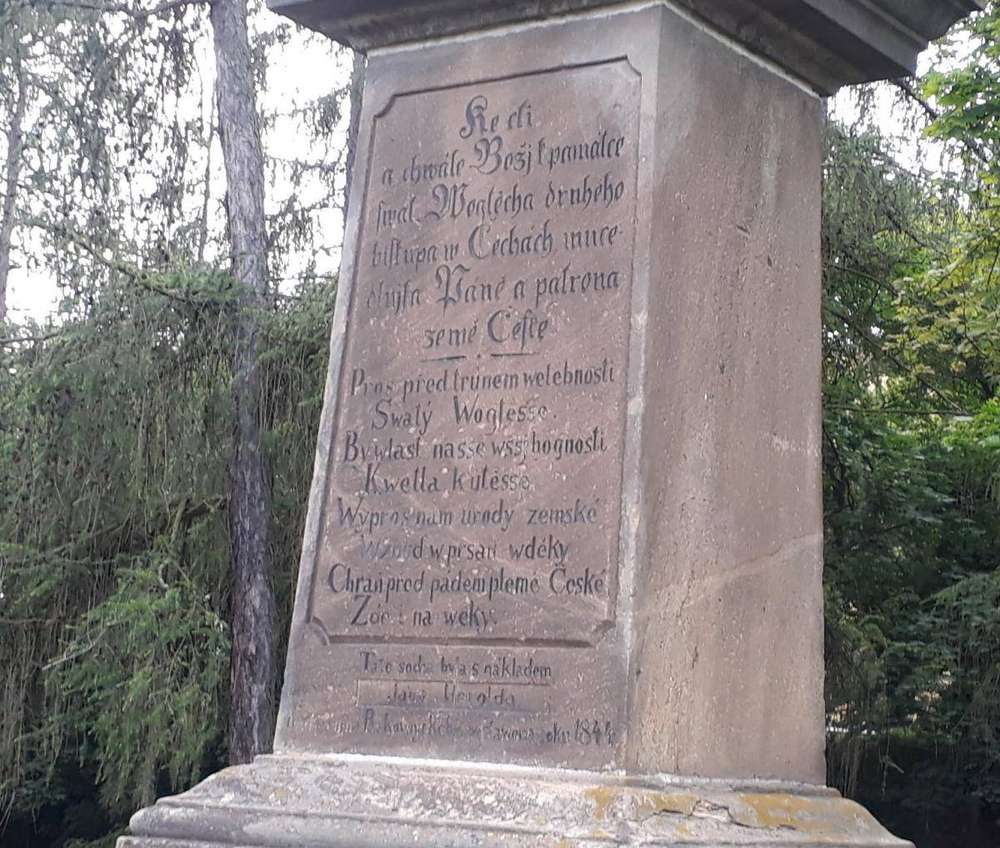 Ke cti
a chwále Božj k památce
swat. Woglěcha druhého
biskupa w Čechách muče-
dnjka Páně a patrona
země České
Pros před trůnem welebnosti
Swatý Woglesse
By wlast nasse w ssihognosti
Kwetla k utěsse
Wypros nam urody zemské
Wzbuď w prsau wděky
Chraň pred pádem plemě České
Zde i na weky.
Tato socha byla s nákladem
Jana Herolda
roku 1844